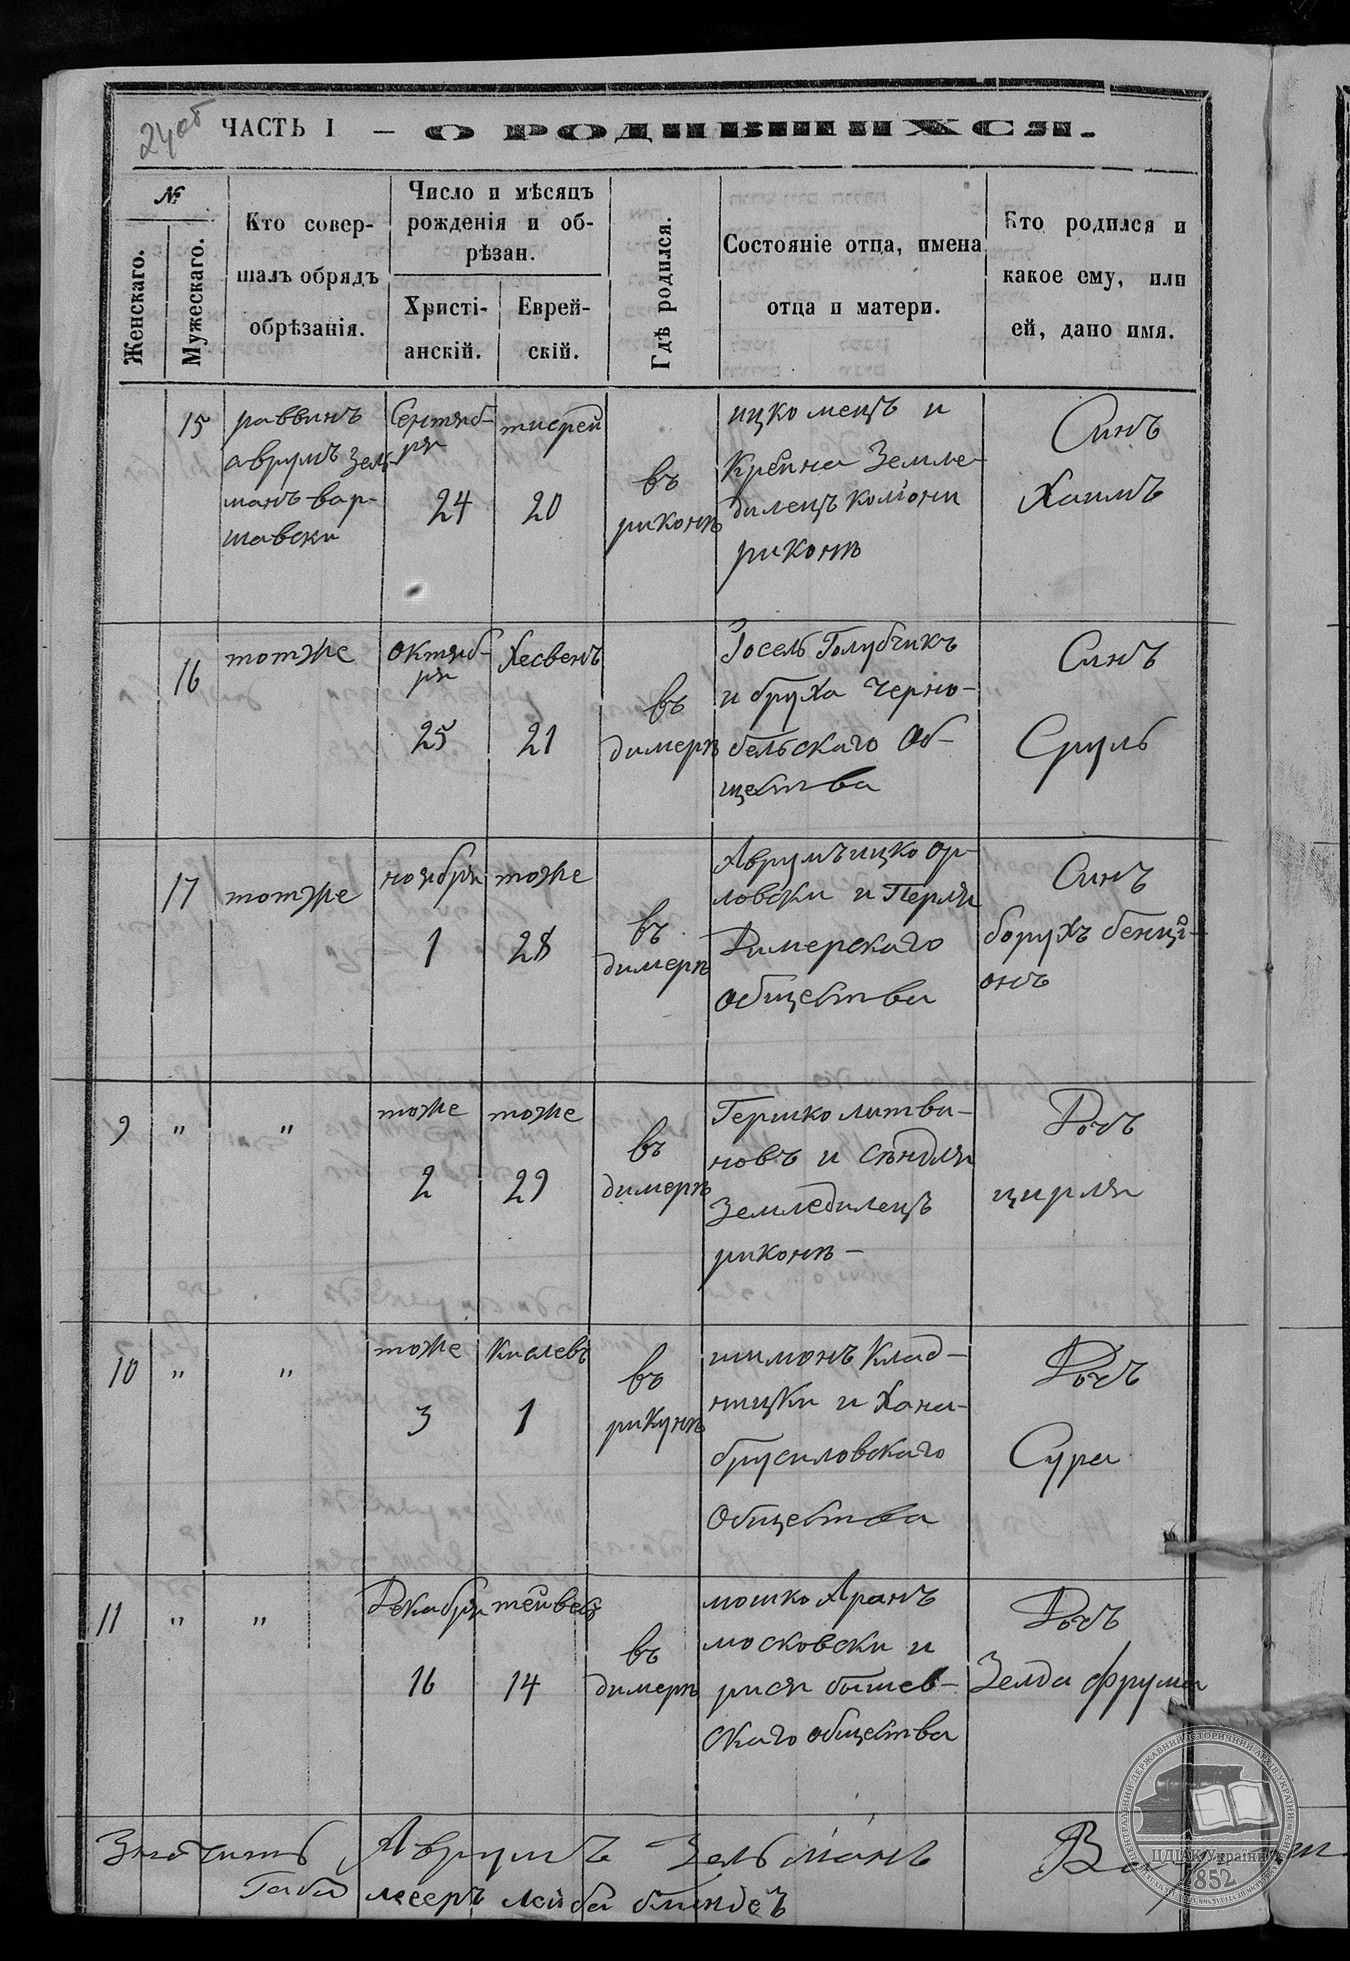 24об
ЧАСТЬ I — О РОДИВШИХСЯ.
№
Женскаго.
Мужескаго.
Кто совер-
шалъ обрядъ
обрѣзанія.
Число и мѣсяцъ
рожденія и об-
рѣзан.
Христі-
анскій.
Еврей-
скій.
Гдѣ родился.
Состояніе отца, имена
отца и матери.
Кто родился и
какое ему, или
ей, дано имя.
15
раввинъ
аврумъ Зель
манъ вар-
шавски
Сентяб-
ря
24
тисрей
20
въ
риконѣ
ицко мецъ и
Крейна Земле-
дилецъ колюни
риконѣ
Синъ
Хаимъ
16
тотже
октяб-
ря
25
Хесвенъ
21
въ
димерѣ
Іосель Голубчикъ
и бруха Черно-
бельскаго Об-
щества
Синъ
Сруль
17
тотже
ноября
1
тоже
28
въ
димерѣ
Аврумъ ицко ор-
ловски и Перля
Димерскаго
общества
Синъ
борухъ бенці-
онъ
9
"
"
тоже
2
тоже
29
въ
димерѣ
Гершко литви-
новъ и сѣндля
Земледилецъ
риконѣ —
Дочъ
цирля
10
"
"
тоже
3
Кислевъ
1
въ
рикунѣ
шимонъ Клад-
ницки и Хана-
брусиловскаго
Общества
Дочъ
Сура
11
"
"
Декабря
16
тейвесъ
14
въ
димерѣ
мошко Аранъ
московски и
рися бышев-
скаго общества
Дочъ
Зелда фрума
Аврумъ Зельманъ
лейба
ЦЕНТРАЛЬНИЙ ДЕРЖАВНИЙ ІСТОРИЧНИЙ АРХІВ УКРАЇНИ
ЦДІАК України
1852